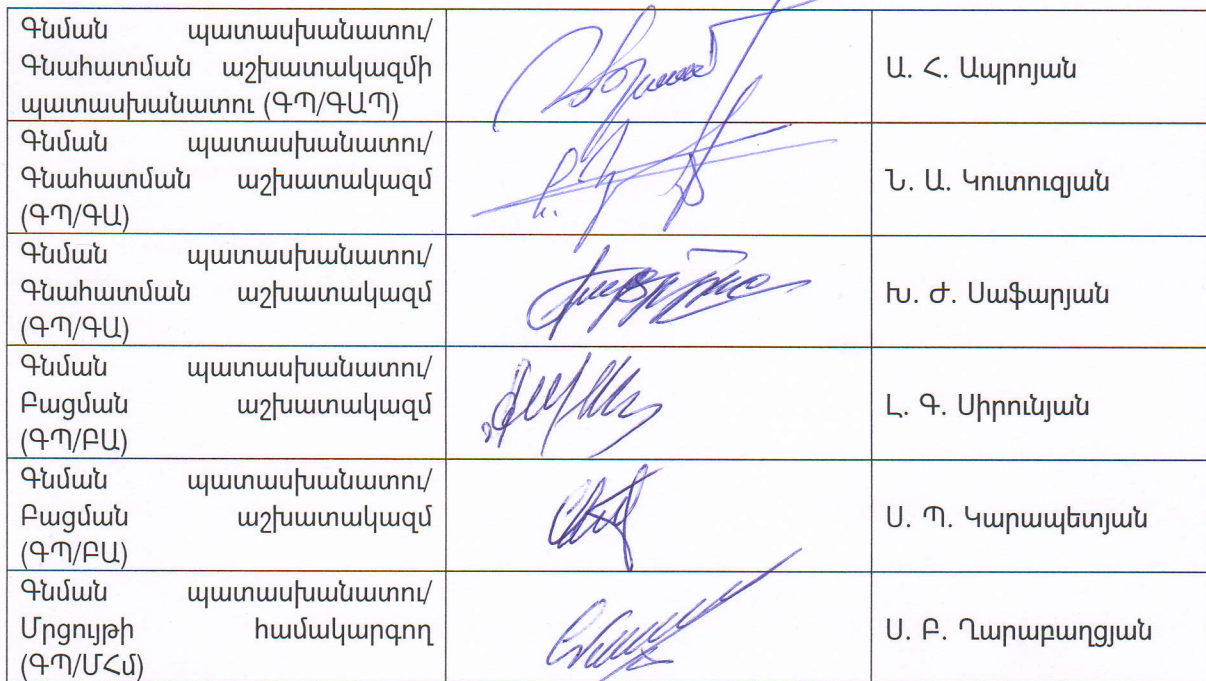 Գնման պատասխանատու/
Գնահատման աշխատակազմի
պատասխանատու (ԳՊ/ԳԱՊ)
Ա. Հ. Ապրոյան
Գնման պատասխանատու/
Գնահատման աշխատակազմ
(ԳՊ/ԳԱ)
Ն. Ա. Կուտուզյան
Գնման պատասխանատու/
Գնահատման աշխատակազմ
(ԳՊ/ԳԱ)
Խ. Ժ. Սաֆարյան
Գնման պատասխանատու/
Բացման աշխատակազմ
(ԳՊ/ԲԱ)
Լ. Գ. Սիրունյան
Գնման պատասխանատու/
Բացման աշխատակազմ
(ԳՊ/ԲԱ)
Ս. Պ. Կարապետյան
Գնման պատասխանատու/
Մրցույթի համակարգող
(ԳՊ/ՄՀմ)
Ս. Բ. Ղարաբաղցյան